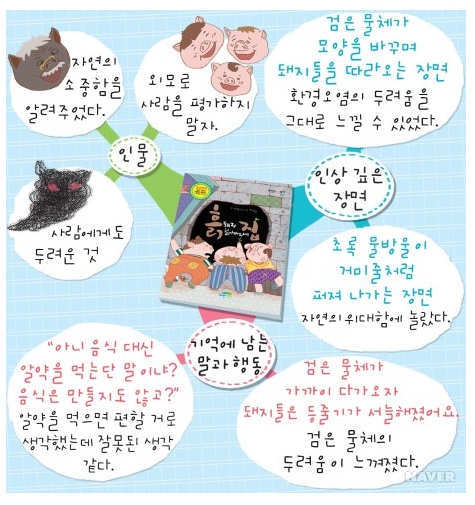 자연의
소중함을
알려주었다.
외모로
사람을 평가하지
말자.
검은 물체가
모양을 바꾸며
돼지들을 따라오는 장면
환경오염의 두려움을
그대로 느낄 수 있었다.
인물
인상 깊은
장면
사람에게도
두려운 것
흙집
초록 물방울이
거미줄처럼
퍼져 나가는 장면
자연의 위대함에 놀랐다.
기억에 남는
말과 행동
"아니 음식 대신
알약을 먹는단 말이냐?
음식은 만들지도 않고?"
알약을 먹으면 편할 거로
생각했는데 잘못된 생각
같다.
검은 물체가
가까이 다가오자
돼지들은 등줄기가 서늘해졌어요.
검은 물체의
두려움이 느껴졌다.
NAVER